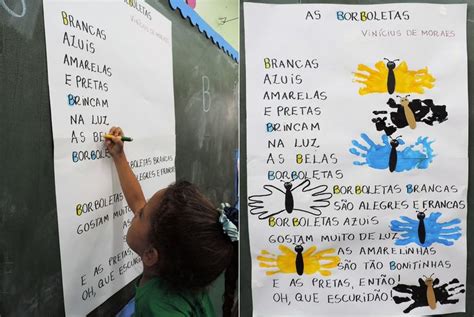 BORBOLETAS
VINÍCIUS DE MORAES
BRANCAS
AZUIS
AMARELAS
E PRETAS
BRINCAM
NA LUZ
AS BELAS
BORBOLETAS
BORBOLETAS BRANCAS
ALEGRES E FRANCAS
BORBOLETAS
GOSTAM MUITO
AS
E AS PRETAS,
OH, QUE ESCURI
B
AS BORBOLETAS
VINÍCIUS DE MORAES
BRANCAS
AZUIS
AMARELAS
E PRETAS
BRINCAM
NA LUZ
AS BELAS
BORBOLETAS
BORBOLETAS BRANCAS
SÃO ALEGRES E FRANCAS
BORBOLETAS AZUIS
GOSTAM MUITO DE LUZ
AS AMARELINHAS
SÃO TÃO BONITINHAS
E AS PRETAS, ENTÃO!
OH, QUE ESCURIDÃO!